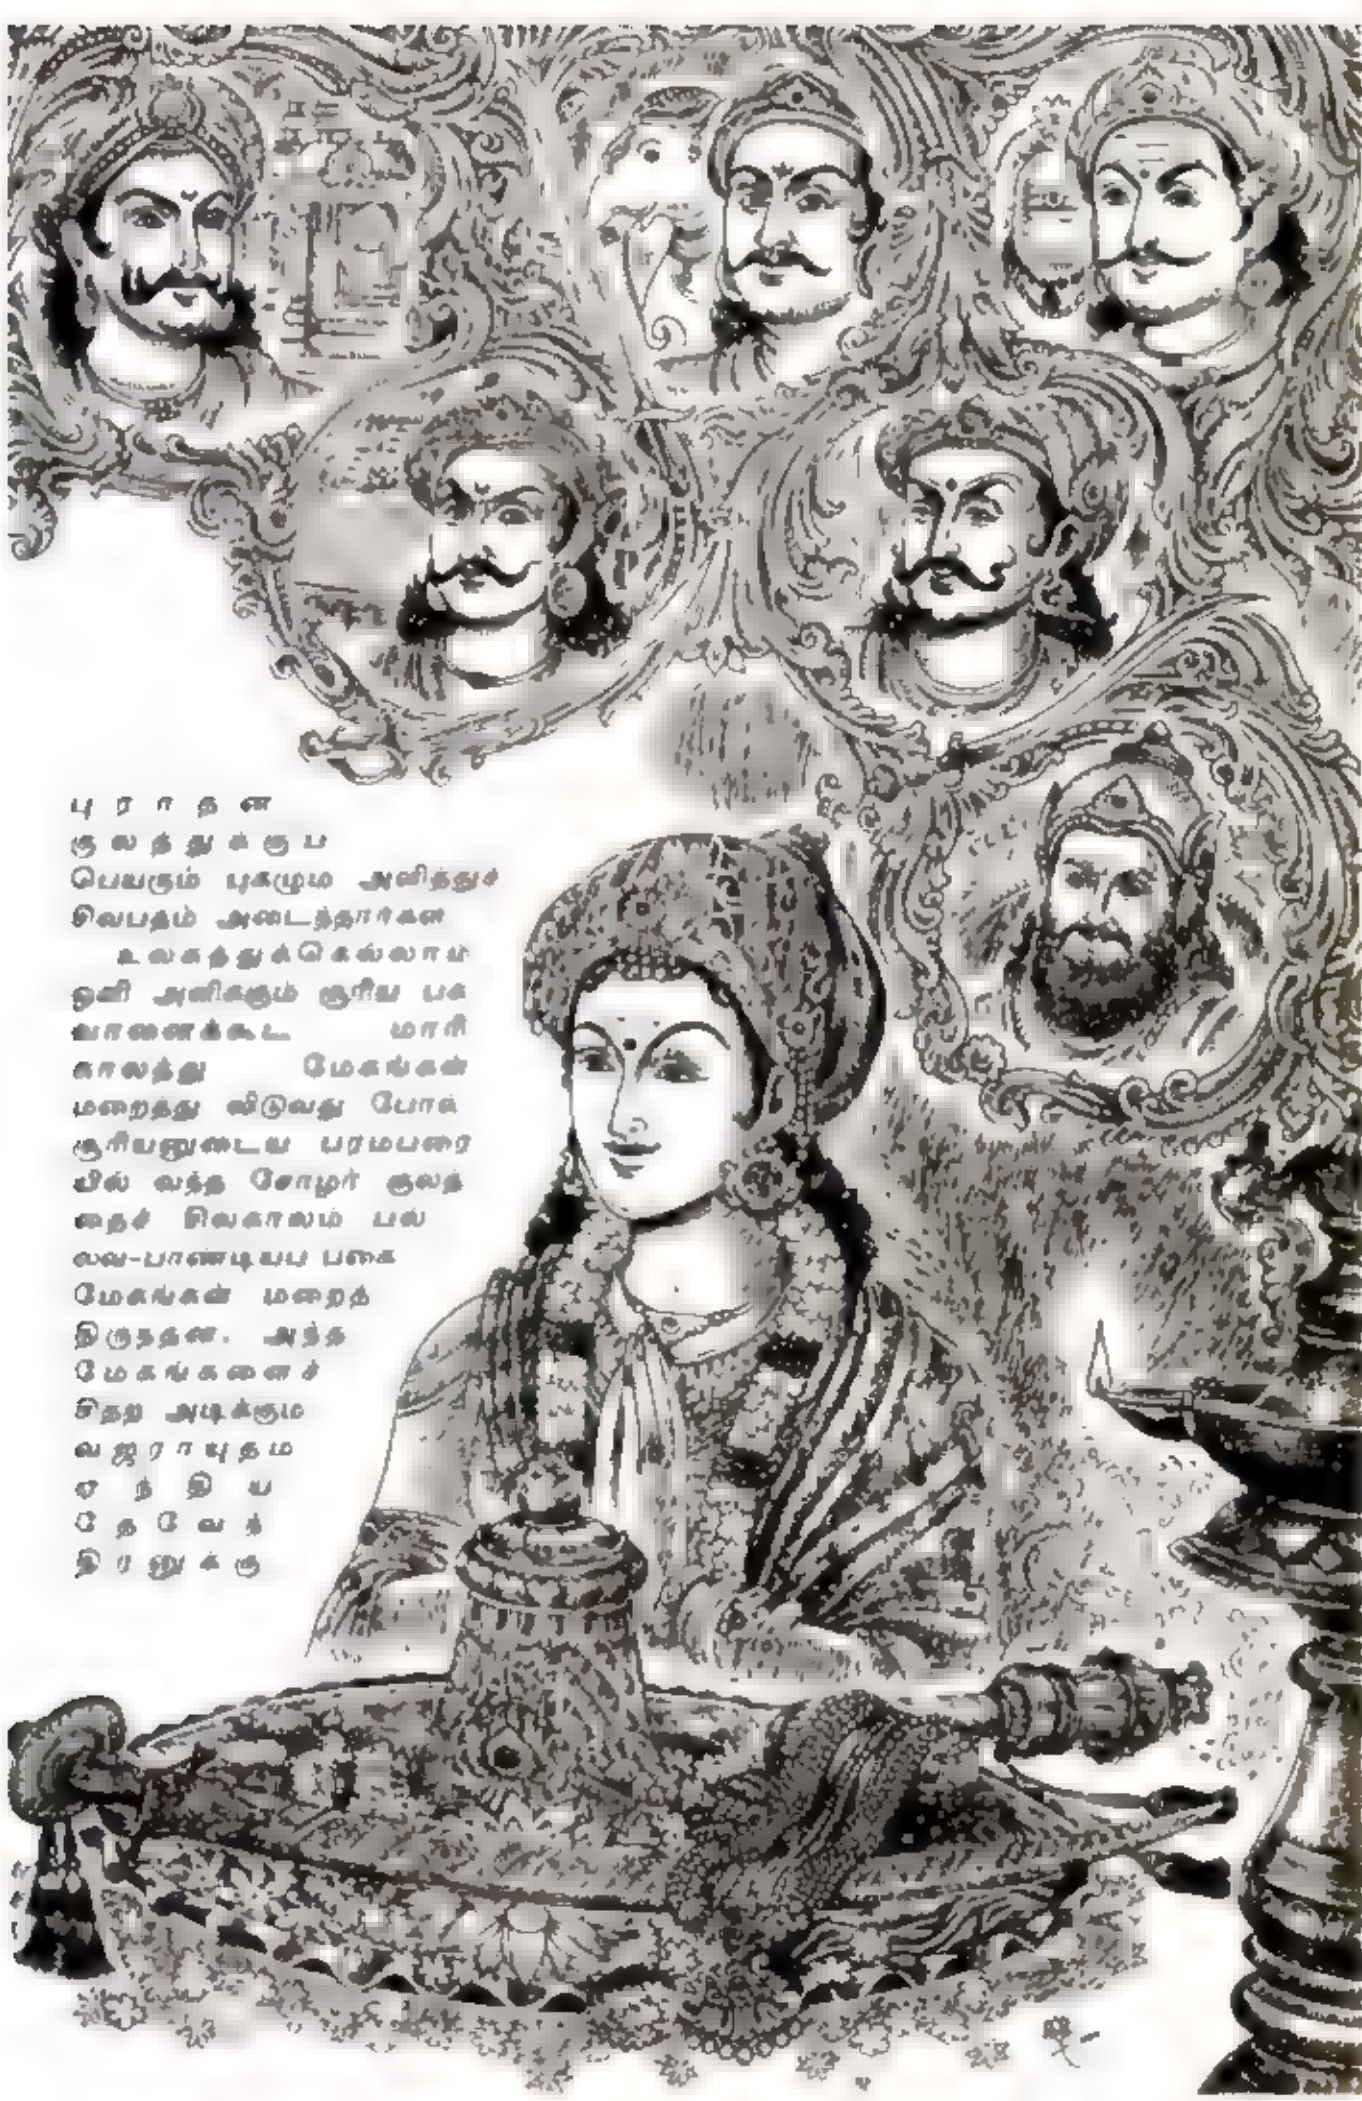 புராதன
குலத்துக்குப்
பெயரும் புகழும் அளித்துச்
சிவபதம் அடைந்தார்கள்
உலகத்துக்கெல்லாம்
ஒளி அளிக்கும் சூரிய பக
வானைக்கூட மாரி
காலத்து மேகங்கள்
மறைத்து விடுவது போல்
சூரியனுடைய பரம்பரை
யில் வந்த சோழர் குலத்
தைச் சிலகாலம் பல்
லவ-பாண்டியப் பகை
மேகங்கள் மறைத்
திருந்தன. அந்த
மேகங்களைச்
சிதற அடிக்கும்
வஜ்ராயுதம்
ஏந்திய
தேவேந்
திரனுக்கு